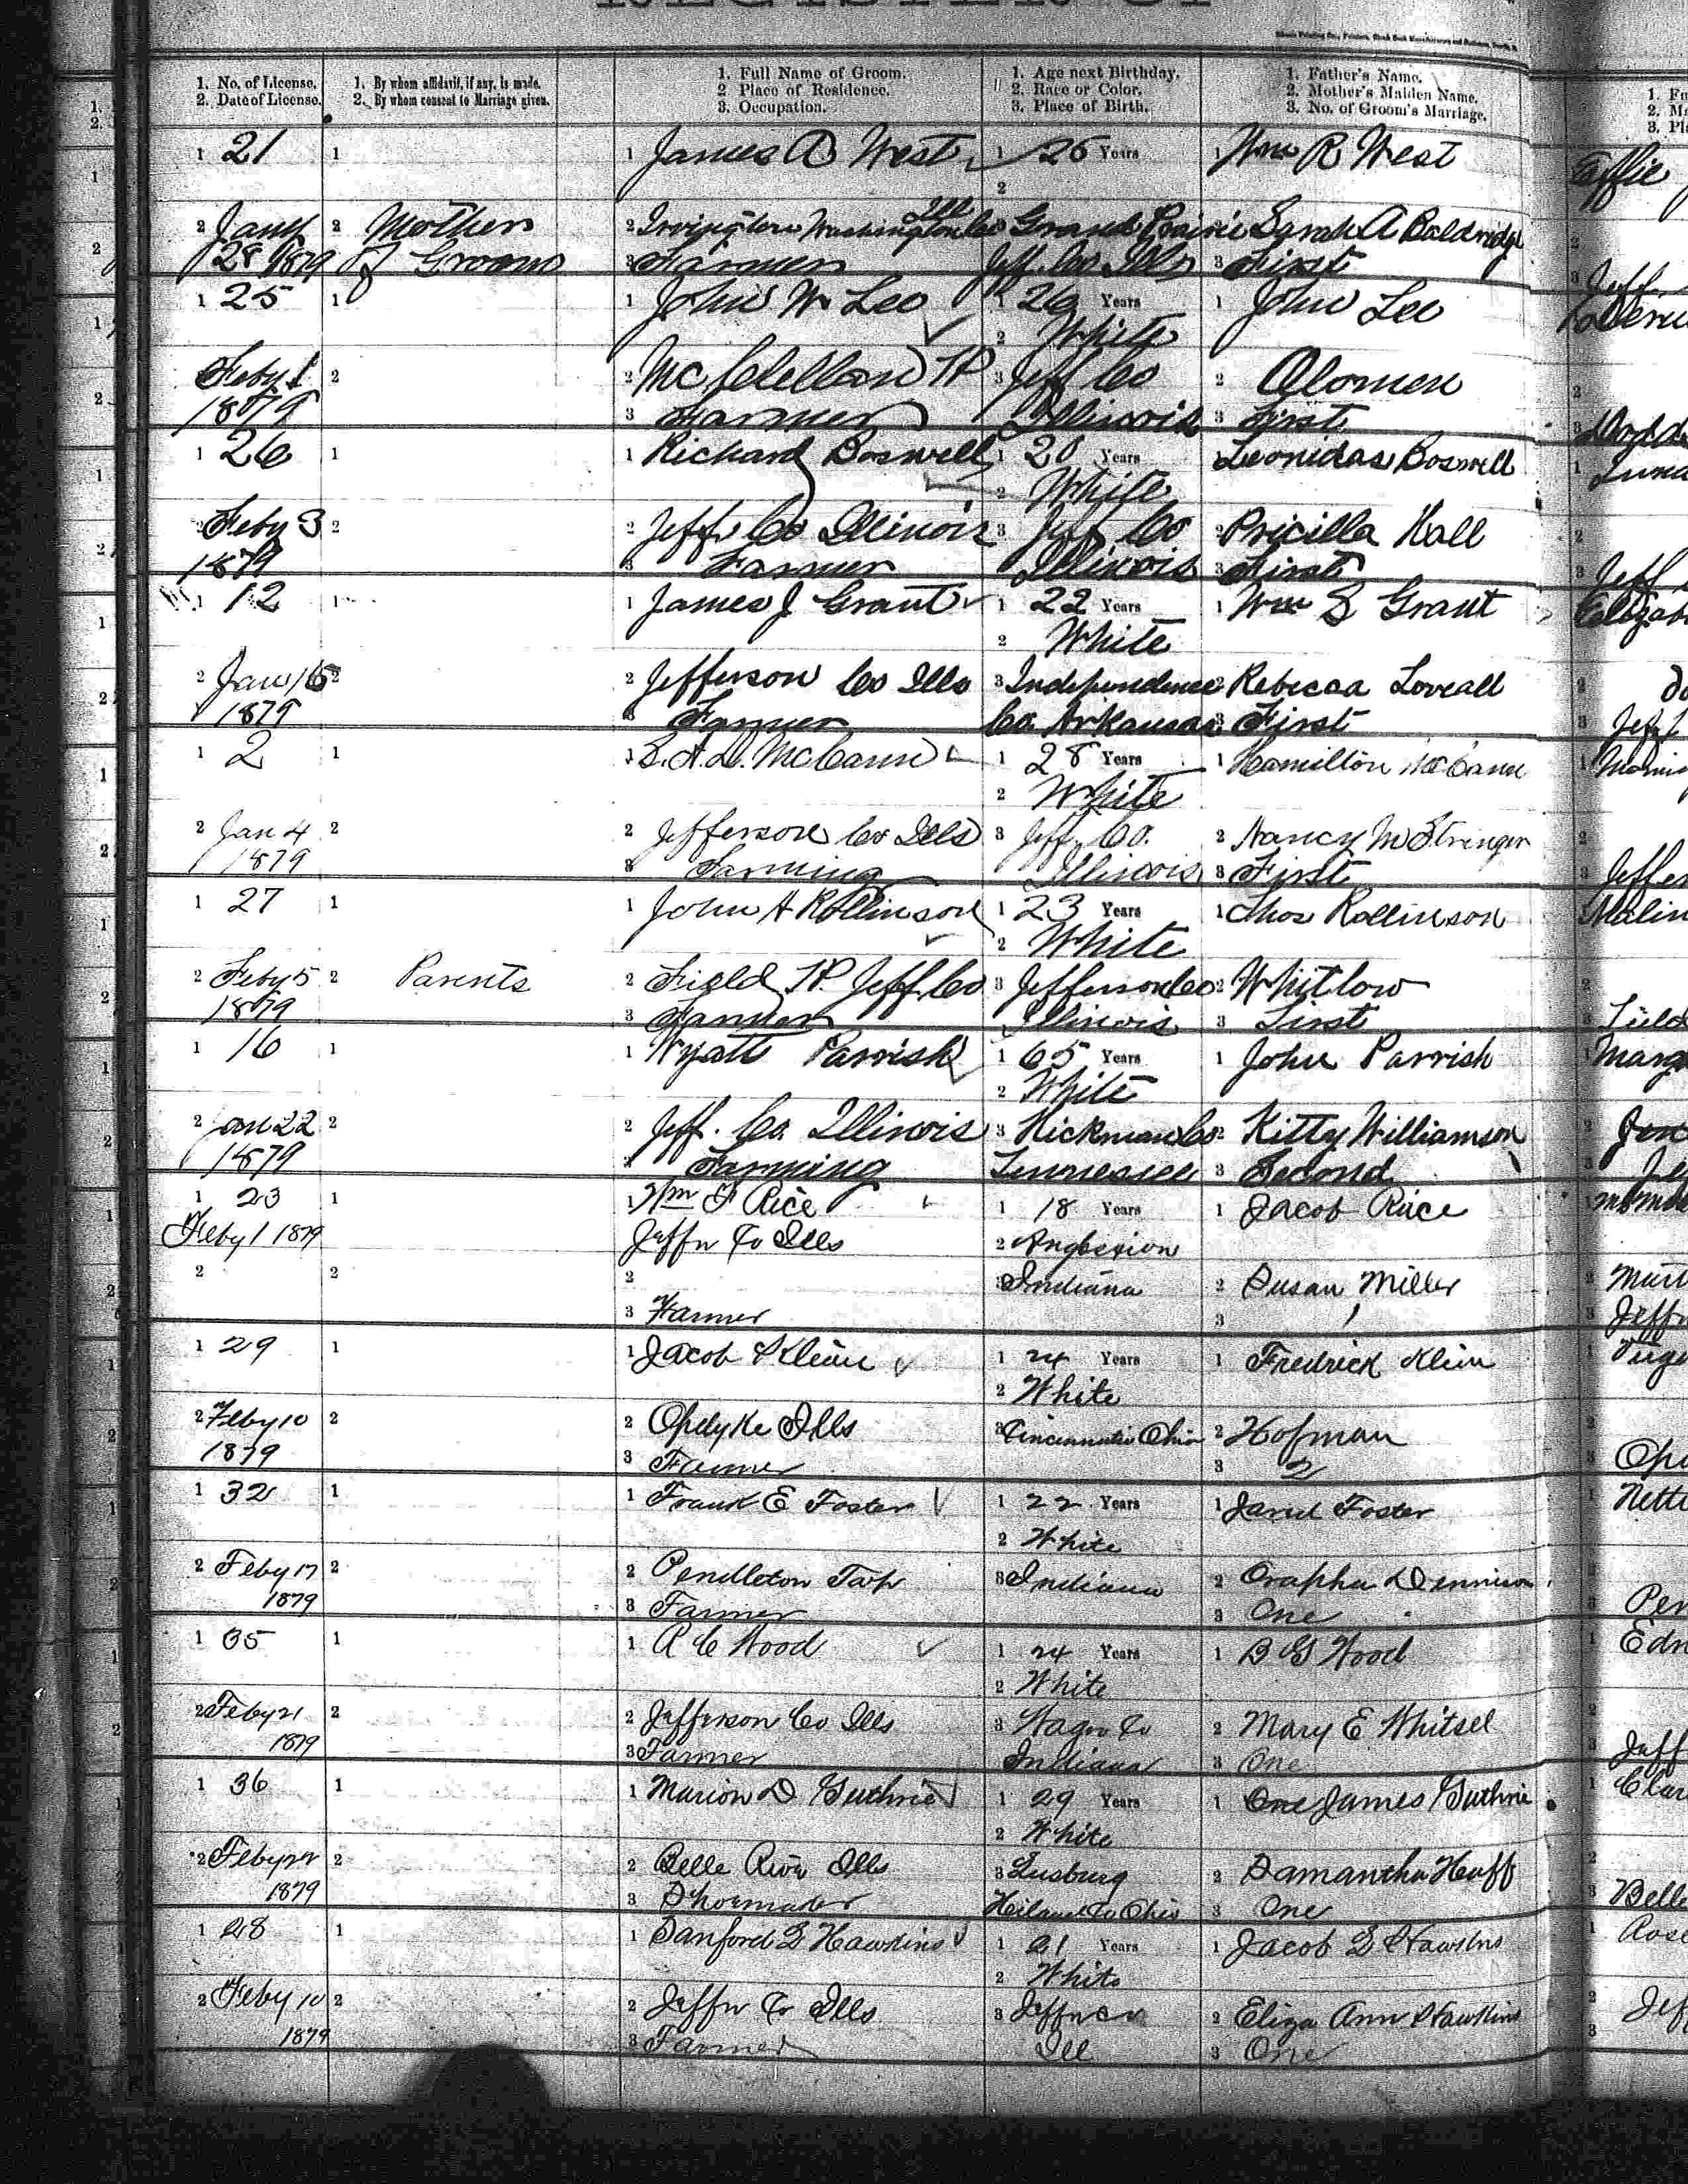 REGISTER OF
1. No. of License. 1. By whom affidavit, if any, is made. 1. Full Name of Groom. 1. Age next Birthday. 1. Father's Name.
2. Date of License. 2. By whom consent to Marriage given. 2 Place of Residence. 2. Race or Color. 2. Mother's Maiden Name.
3. Occupation. 3. Place of Birth. 3. No. of Groom's Marriage.
1 21 1 1 James A West 1 26 Years 1 Wm R West
2
Ill
2 Jany 2 Mother 2 Irvington Washington Co Grand Prairie Sarah A Baldridge
28 1879 of Groom 3 Farmer Jeff. Co Ills 3 First
1 25 1 John W Lee 1 26 Years 1 John Lee
2 White
Feby 1 2 2 McClellan TP 3 Jeff Co 2 Alomen
1879 3 Farmer Illinois 3 First
1 26 1 1 Richard Boswell 1 20 Years 1 Leonidas Boswell
2 White
2 Feby 3 2 2 Jeff Co Illinois 3 Jeff Co 2 Pricilla Hall
1879 3 Farmer Illinois 3 First
1 12 1 1 James J Grant 1 22 Years 1 Wm S Grant
2 White
2 Jan 16 2 2 Jefferson Co Ills 3 Independence 2 Rebecca Loveall
1879 3 Farmer Co. Arkansas 3 First
1 2 1 1 S. A. D. McCann 1 28 Years 1 Hamilton McCann
2 White
2 Jan 4 2 2 Jefferson Co Ills 3 Jeff. Co. 2 Nancy M Stringer
1879 3 Farming Illinois 3 First
1 27 1 1 John A Rollinson 1 23 Years 1 Thos Rollinson
2 White
2 Feby 5 2 Parents 2 Field TP. Jeff. Co 3 Jefferson Co 2 Whitlow
1879 3 Farmer Illinois 3 First
1 16 1 1 Wyatt Parrish 1 65 Years 1 John Parrish
2 White
2 Jan 22 2 2 Jeff. Co. Illinois 3 Hickman Co 2 Kitty Williamson
1879 3 Farming Tennessee 3 Second
1 23 1 1 Wm F Rice 1 18 Years 1 Jacob Rice
Feby 1 1879 Jeffn Co Ills 2
2 2 2 3 Indiana 2 Susan Miller
3 Farmer 3 1
1 29 1 1 Jacob Klein 1 24 Years 1 Fredrick Klein
2 White
2 Feby 10 2 2 Opdyke Ills 3 Cincinnatti Ohio 2 Hofman
1879 3 Farmer 3 2
1 32 1 1 Frank E Foster 1 22 Years 1 Jared Foster
2 White
2 Feby 17 2 2 Pendleton Twp 3 Indiana 2 Orapha Dennison
1879 3 Farmer 3 One
1 35 1 1 R C Wood 1 24 Years 1 B G Wood
2 White
2 Feby 21 2 2 Jefferson Co Ills 3 Co 2 Mary E Whitsel
1879 3 Farmer Indiana 3 One
1 36 1 1 Marion D Guthrie 1 29 Years 1 One James Guthrie
2 White
2 Feby 22 2 2 Belle Rive Ills 3 2 Samantha Huff
1879 3 Shoemaker Co Ohio 3 One
1 28 1 1 Sanford G Hawkins 1 21 Years 1 Jacob G Hawkins
2 White
2 Feby 10 2 2 Jeffn Co Ills 3 Jeffn Co 2 Eliza Ann Hawkins
1879 3 Farmer Ill 3 One